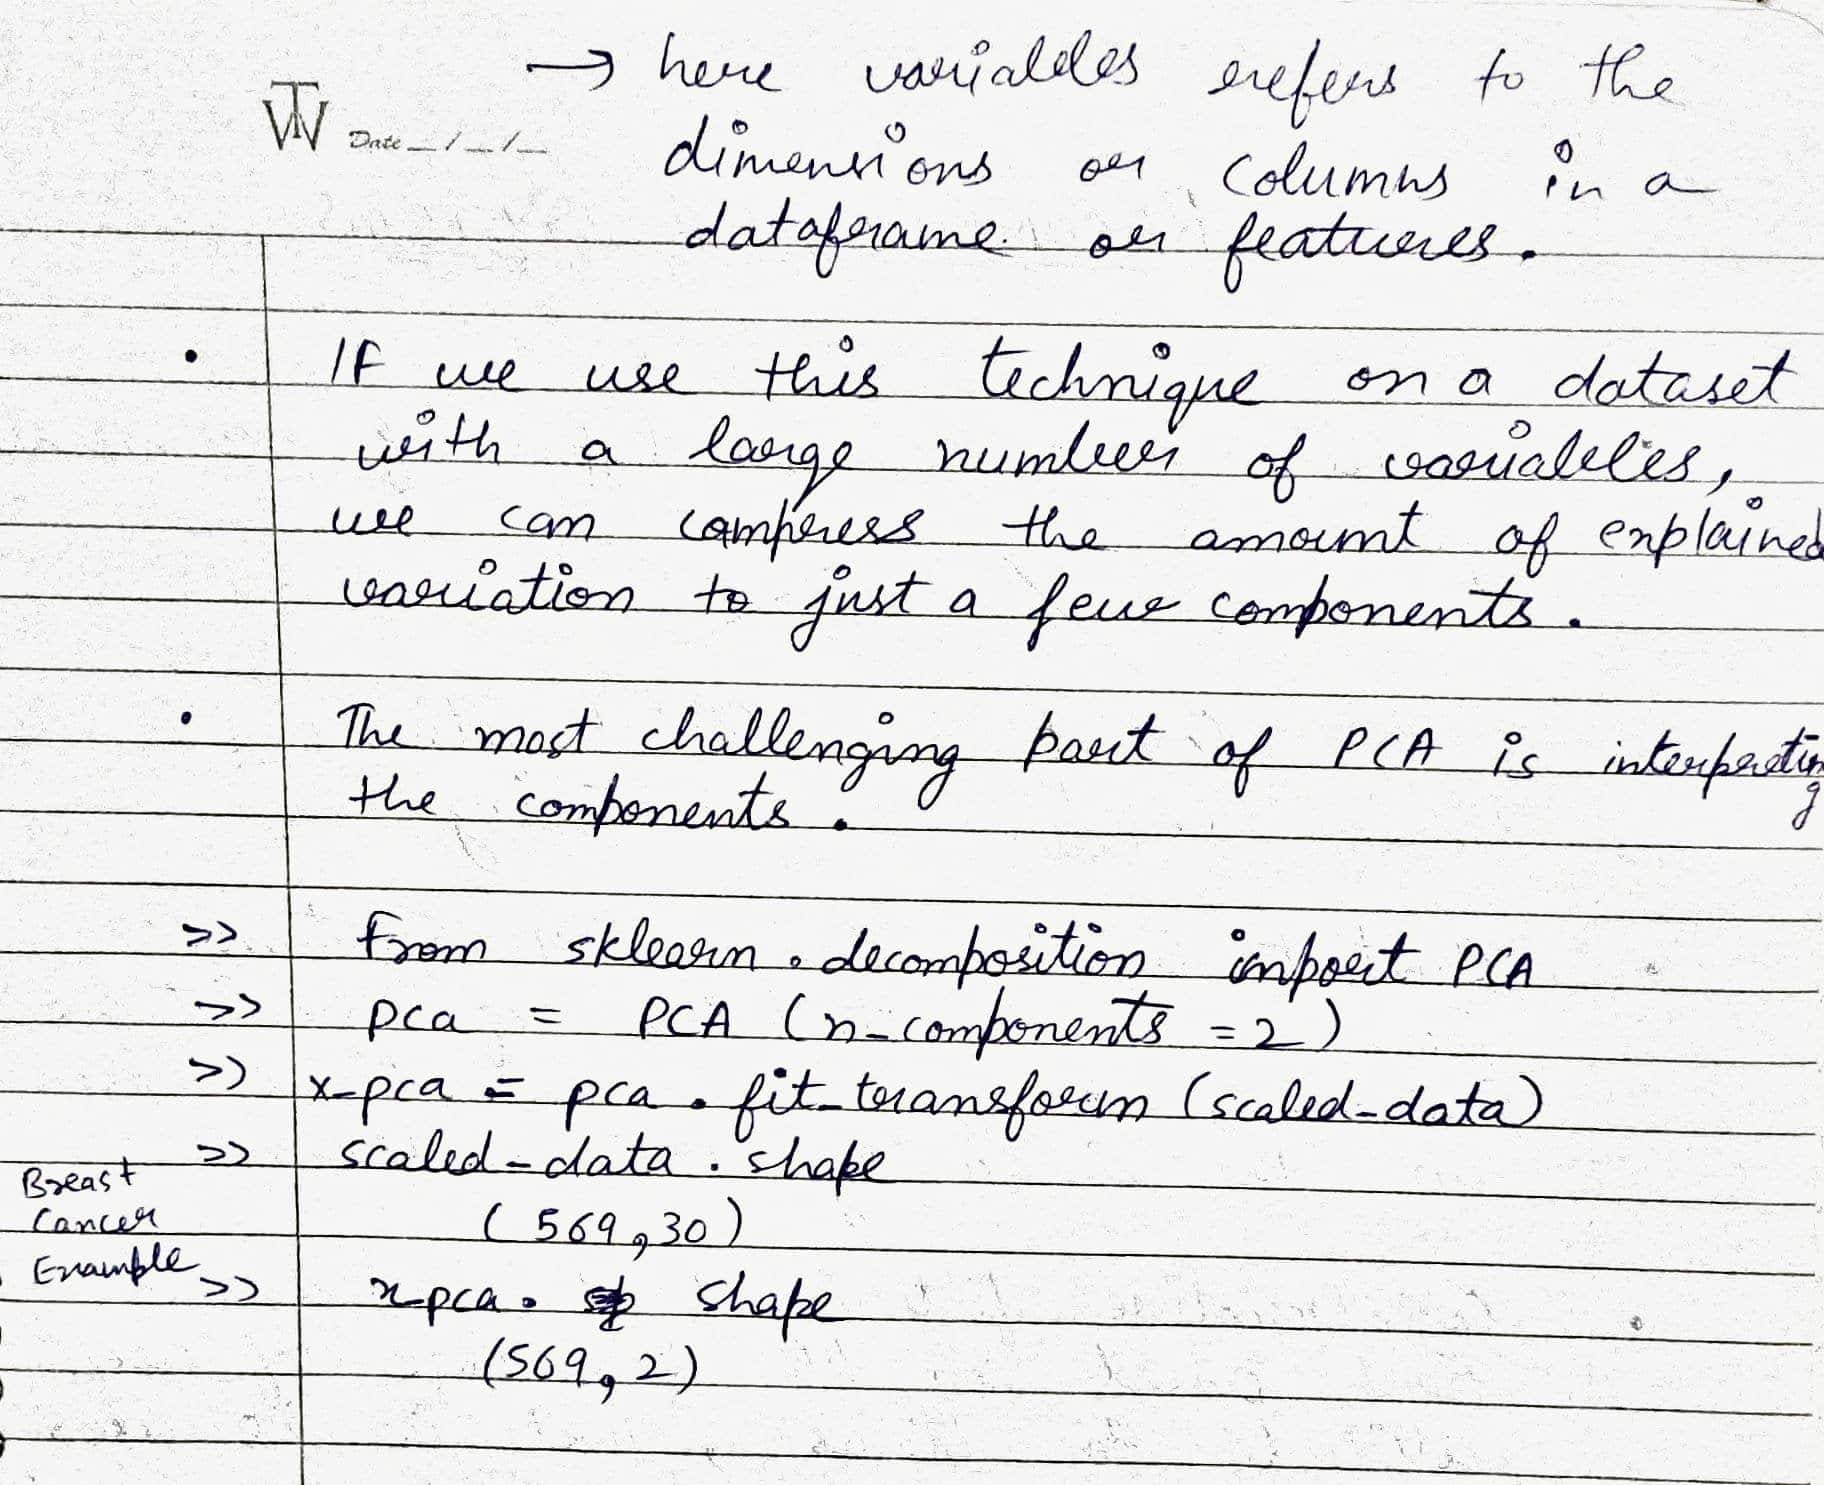 → here variables refers to the
TW Date __/__/__
dimensions or columns in a
dataframe or features.
• If we use this technique on a dataset
with a large number of variables,
we can compress the amount of explained
variation to just a few components.
• The most challenging part of PCA is interpreting
the components.
>> from sklearn.decomposition import PCA
>> pca = PCA (n_components = 2)
>> x_pca = pca.fit_transform (scaled_data)
>> scaled_data.shape
Breast
Cancer
Example
(569, 30)
>> x_pca. shape
(569, 2)